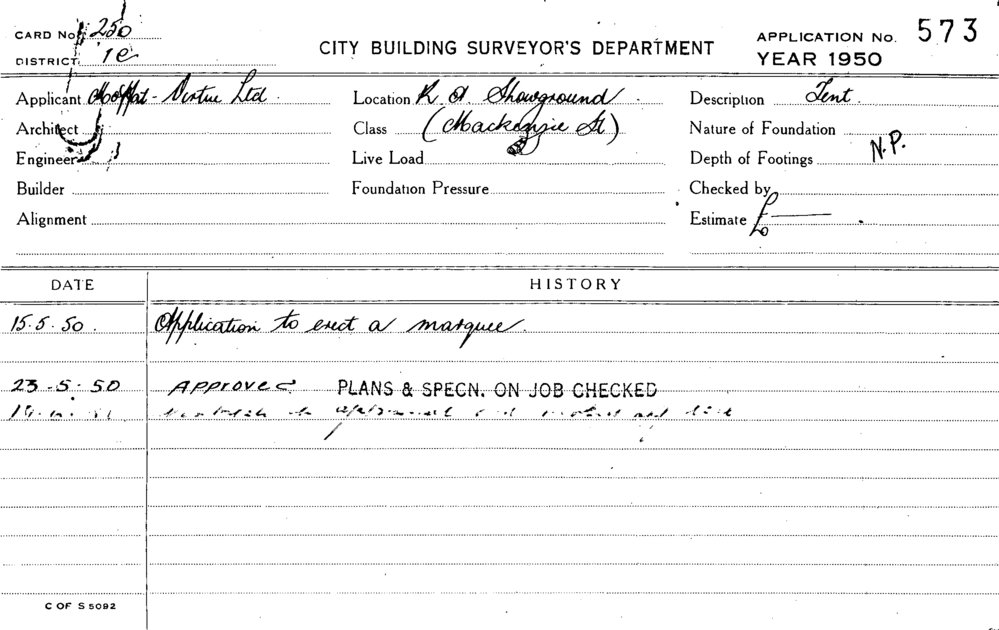 CARD No. 250
DISTRICT 1C
CITY BUILDING SURVEYOR'S DEPARTMENT
APPLICATION No. 573
YEAR 1950
Applicant Moffat-Virtue Ltd. Location R A Showground Description Tent.
Architect Class (Mackenzie St) Nature of Foundation
Engineer Live Load Depth of Footings N.P.
Builder Foundation Pressure Checked by
Alignment Estimate £ —
DATE HISTORY
15.5.50. Application to erect a marquee.
23-5-50 Approved PLANS & SPECN. ON JOB CHECKED
C OF S 5092